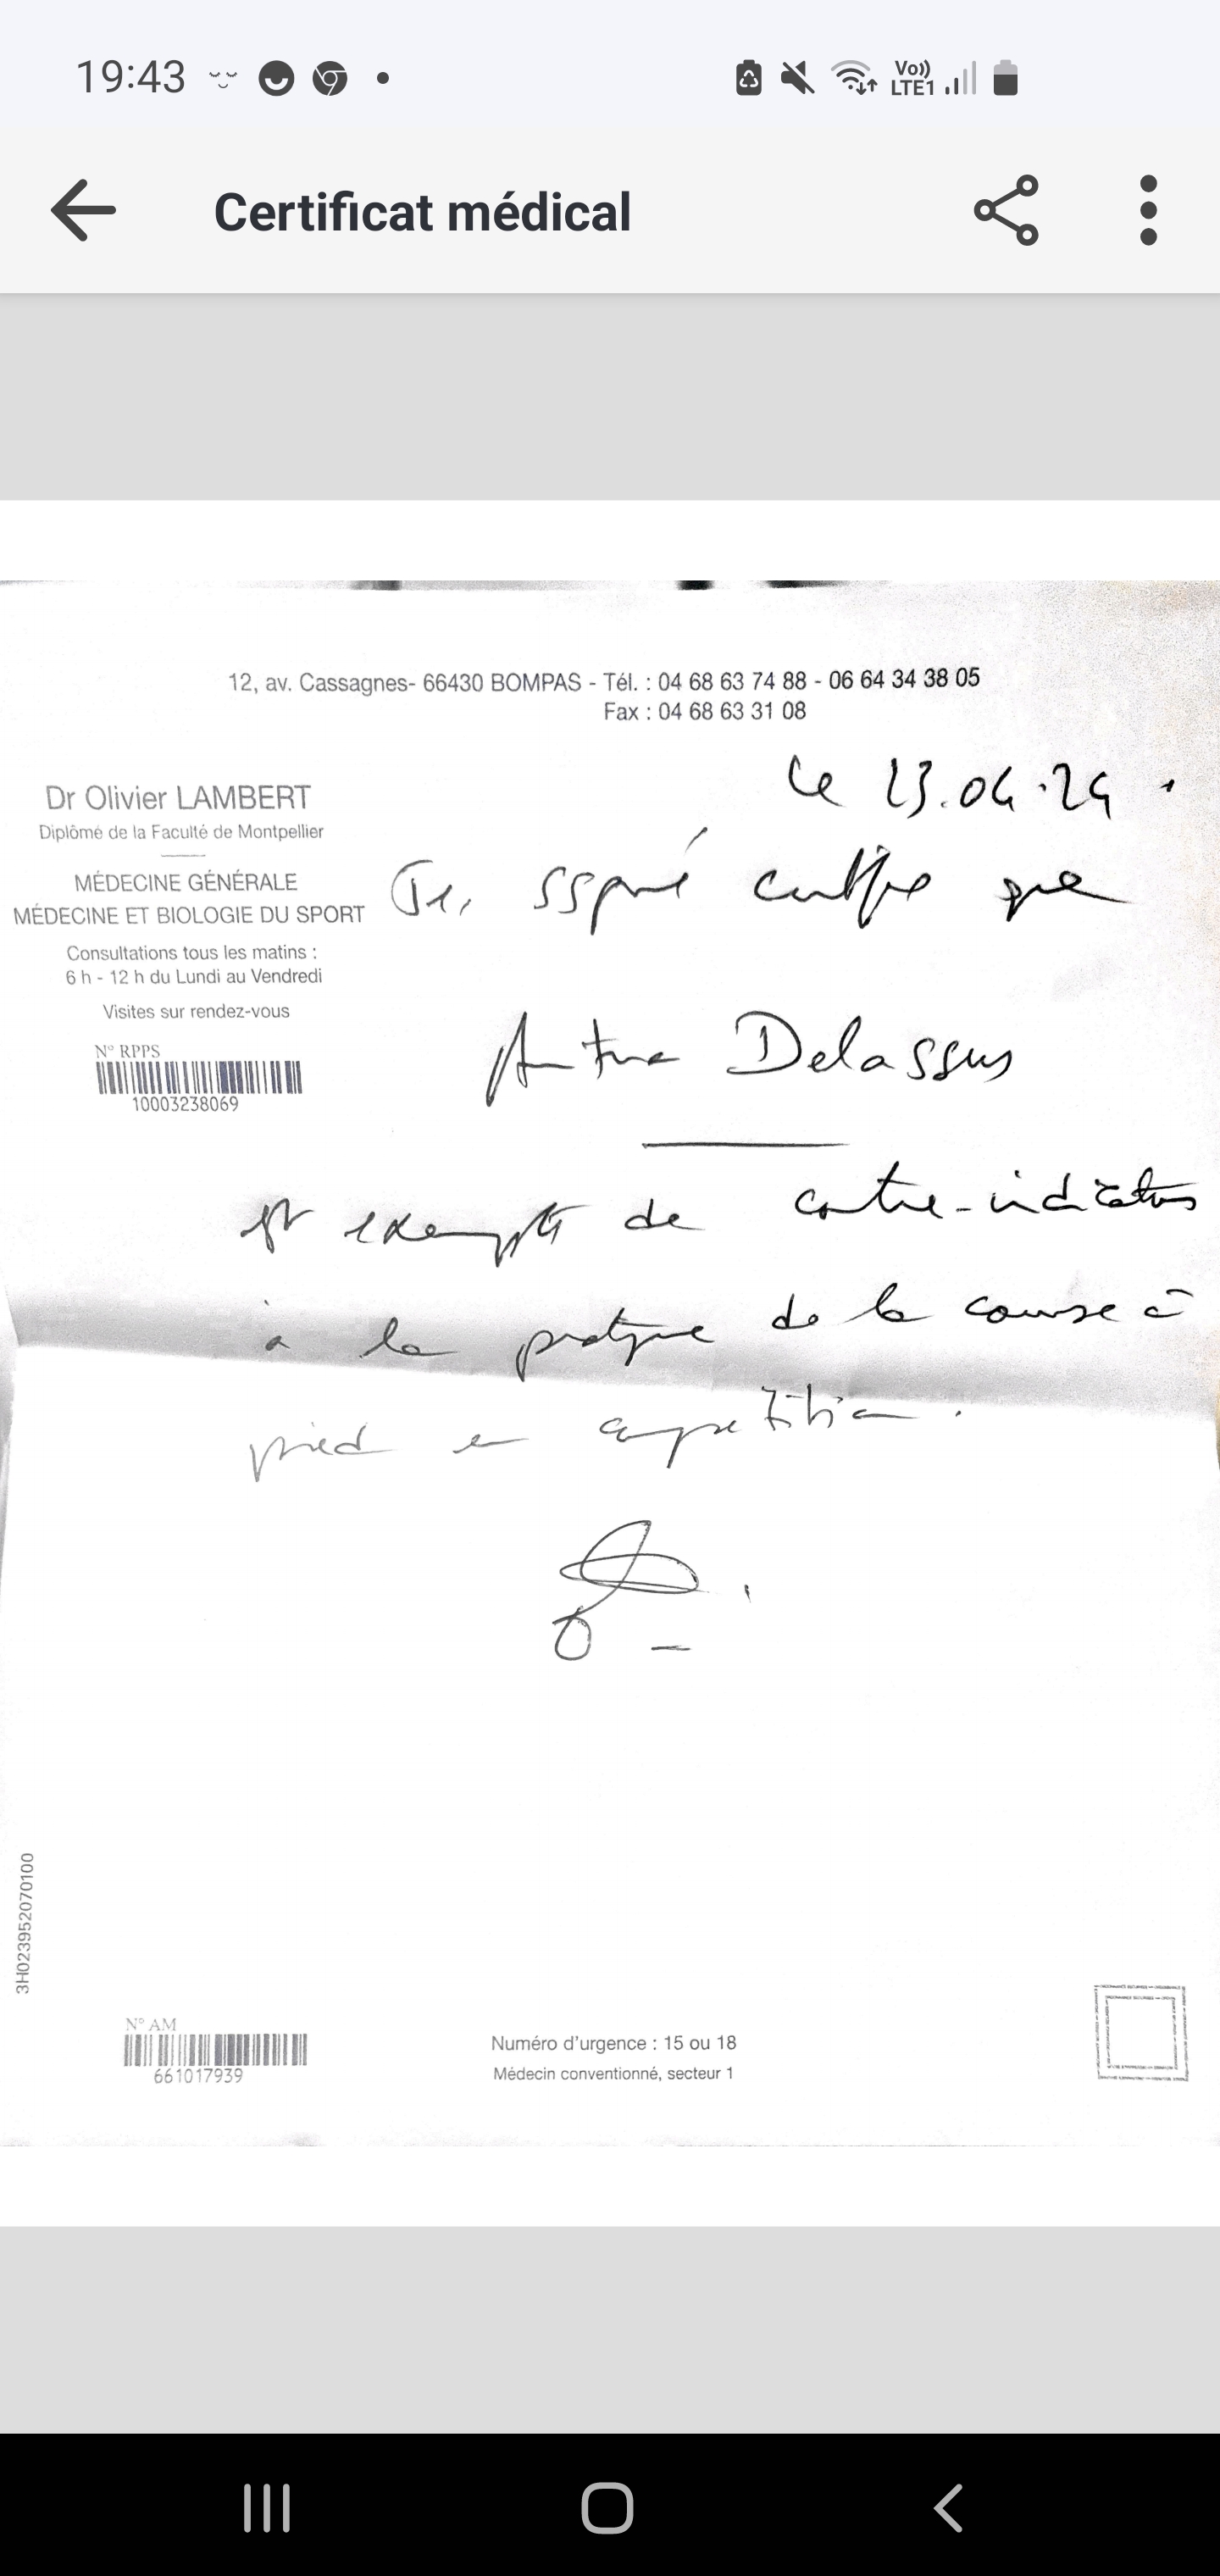 19:43
Vo)) LTE1
Certificat médical
12, av. Cassagnes- 66430 BOMPAS - Tél. : 04 68 63 74 88 - 06 64 34 38 05
Fax : 04 68 63 31 08
Le 23.04.24.
Dr Olivier LAMBERT
Diplômé de la Faculté de Montpellier
MÉDECINE GÉNÉRALE
MÉDECINE ET BIOLOGIE DU SPORT
Consultations tous les matins :
6 h - 12 h du Lundi au Vendredi
Visites sur rendez-vous
N° RPPS
10003238069
Je, ssigné certifie que
Delassus
est exempt de contre-indications
à la pratique de la course à
pied en compétition.
3H023952070100
N° AM
661017939
Numéro d'urgence : 15 ou 18
Médecin conventionné, secteur 1